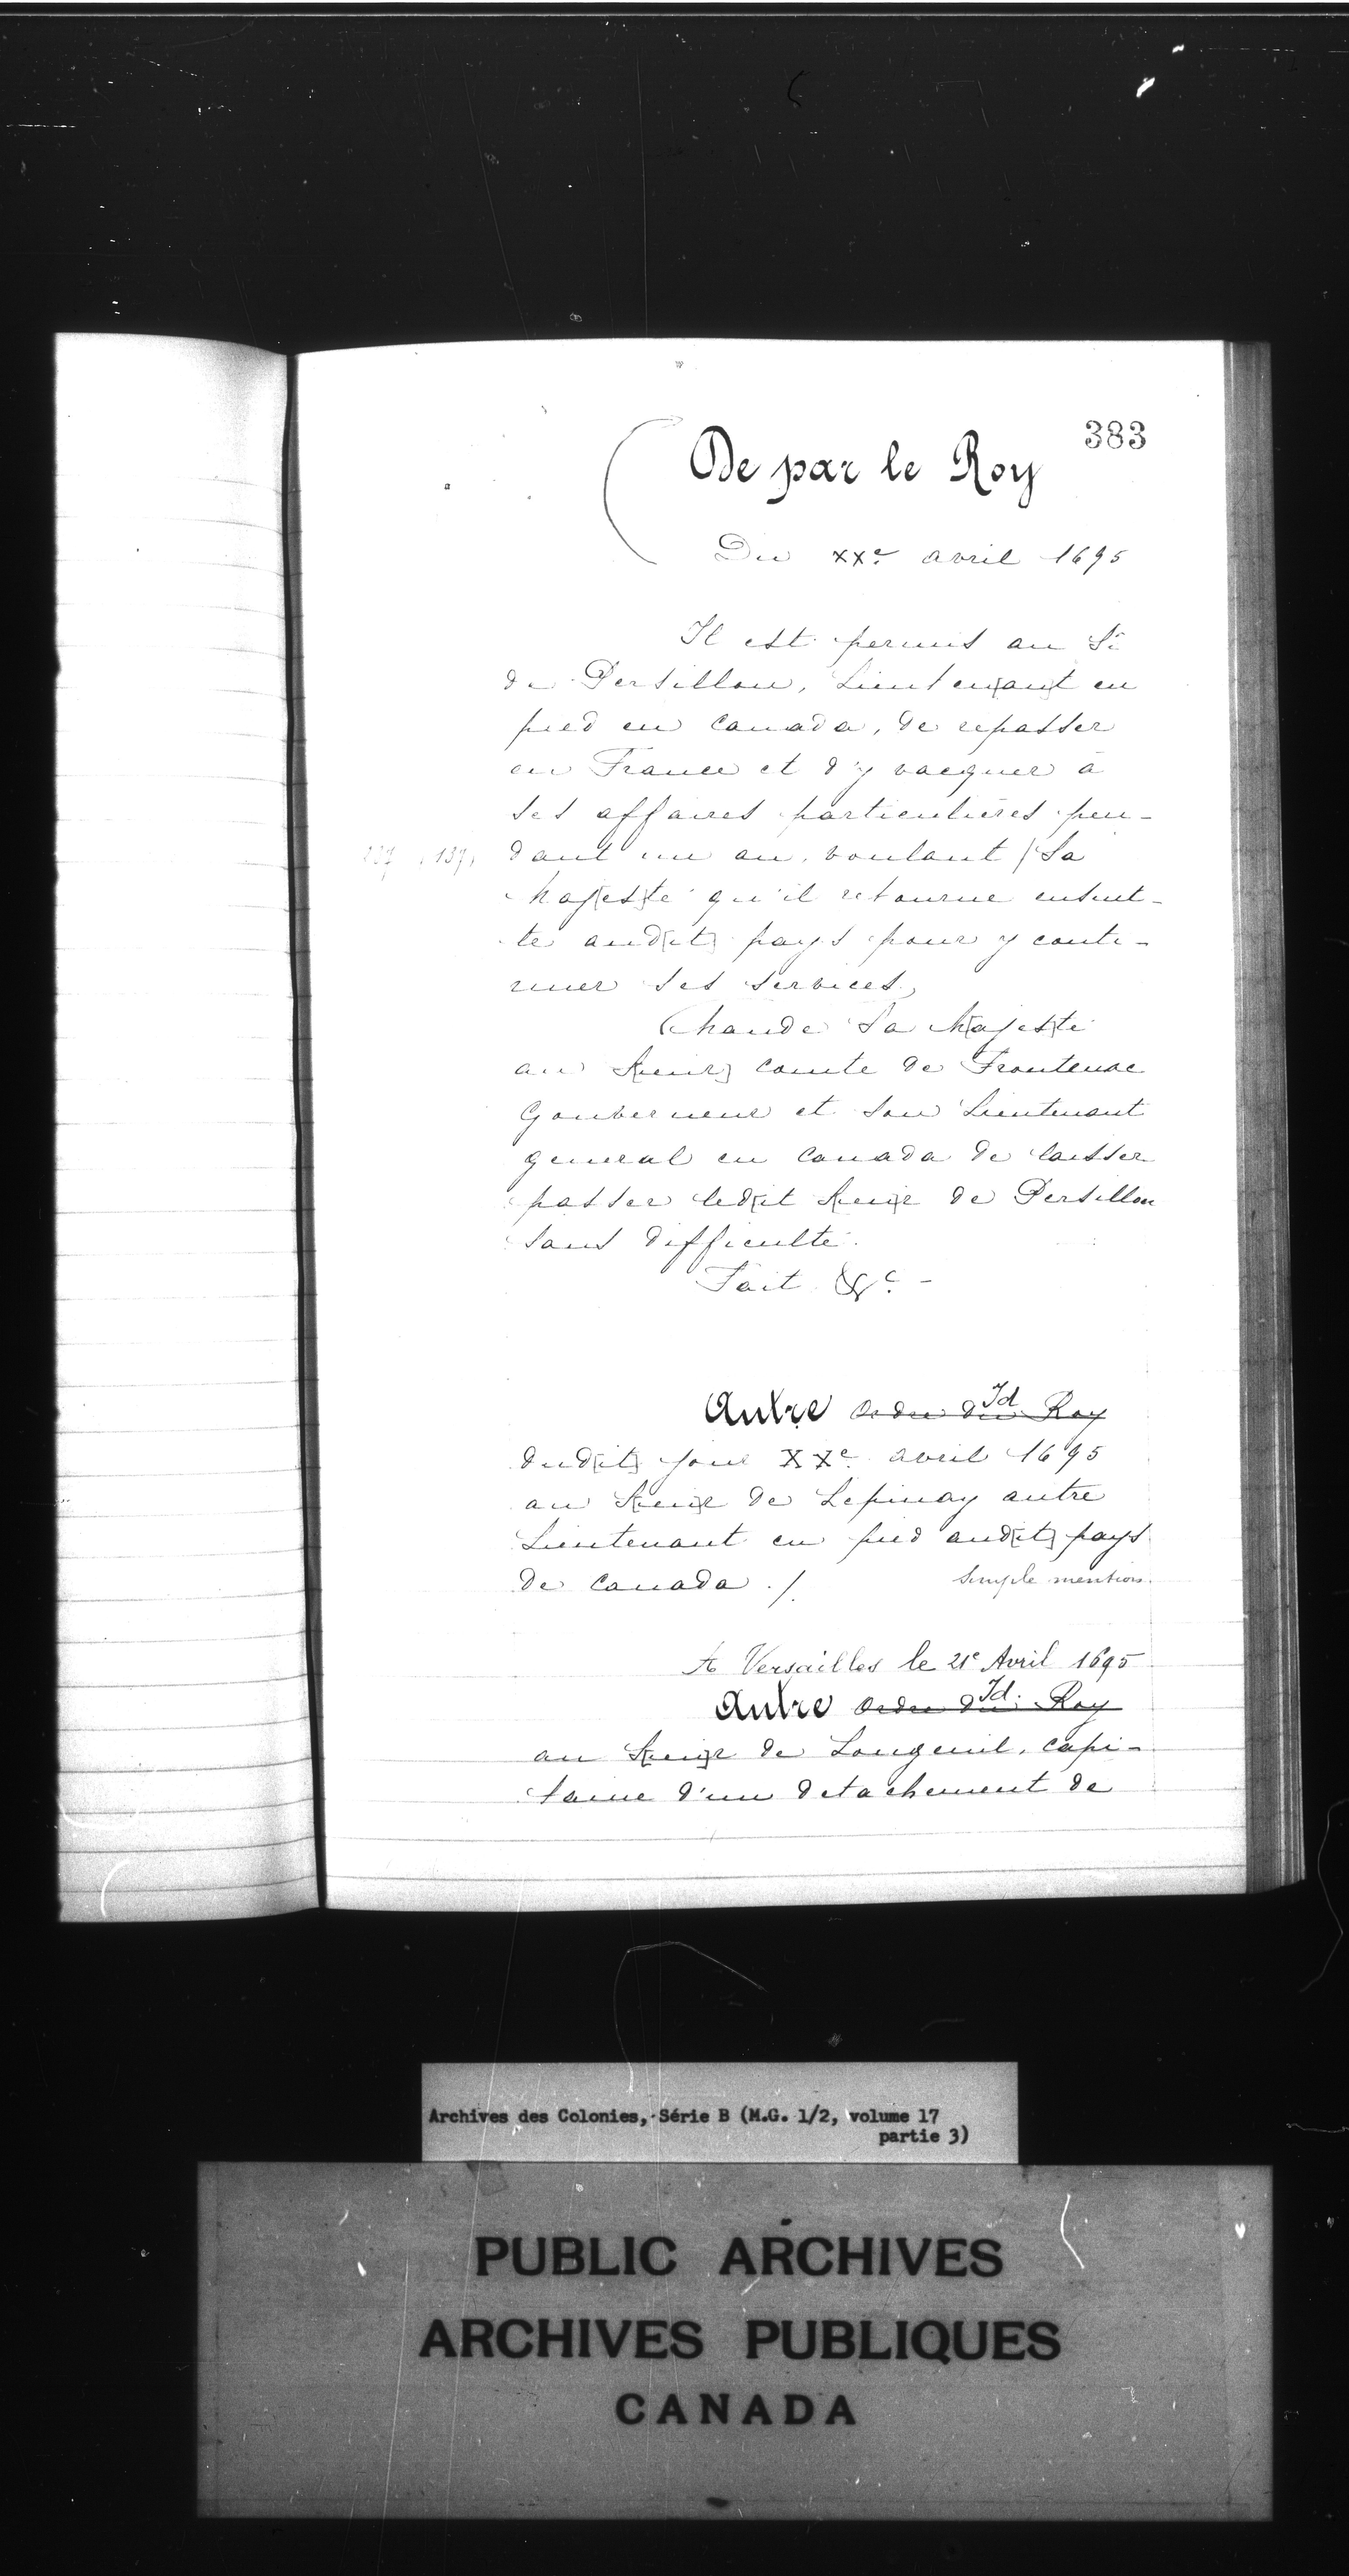 383
De par le Roy
Du XXe avril 1695
Il est permis au Sr
de Persillon, Lieuten[an]t en
pied en Canada, de repasser
en France et d'y vacquer à
ses affaires particulières pen-
137, dant un an, voulant / Sa
Maj[es]té qu'il retourne ensuit-
te aud[it] pays pour y conti-
nuer ses services,
Mande Sa M[ajes]té
au S[ieur] comte de Frontenac
Gouverneur et son Lieutenant
general en Canada de laisser
passer led[i]t S[ieu]r de Persillon
sans difficulté.
Fait &c. -
Autre Ordre du Roy Id
dud[it] jour XXe avril 1695
au S[ieu]r de Lepinay autre
Lieutenant en pied aud[it] pays
de Canada ./. Simple mention
A Versailles le 21e Avril 1695
Autre Ordre du Roy Id.
au S[ieu]r de Longeuil, capi-
taine d'un detachement de
Archives des Colonies, Série B (M.G. 1/2, volume 17
partie 3)
PUBLIC ARCHIVES
ARCHIVES PUBLIQUES
CANADA